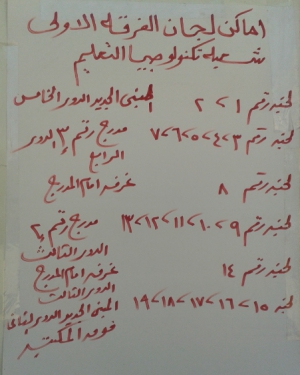 اماكن لجان الفرقة الاولى
شعبة تكنولوجيا التعليم
لجنة رقم ١ ، ٢ المبنى الجديد الدور الخامس
لجنة رقم ٣،٤،٥،٦،٧ مدرج رقم ٣ الدور
الرابع
لجنة رقم ٨ غرفه امام المدرج
لجنة رقم ٩،١٠،١١،١٢،١٣ مدرج رقم ٢
الدور الثالث
لجنة رقم ١٤ غرفه امام المدرج
الدور الثالث
لجنة ١٥،١٦،١٧،١٨،١٩ المبنى الجديد الدور الثانى
فوق المكتبة